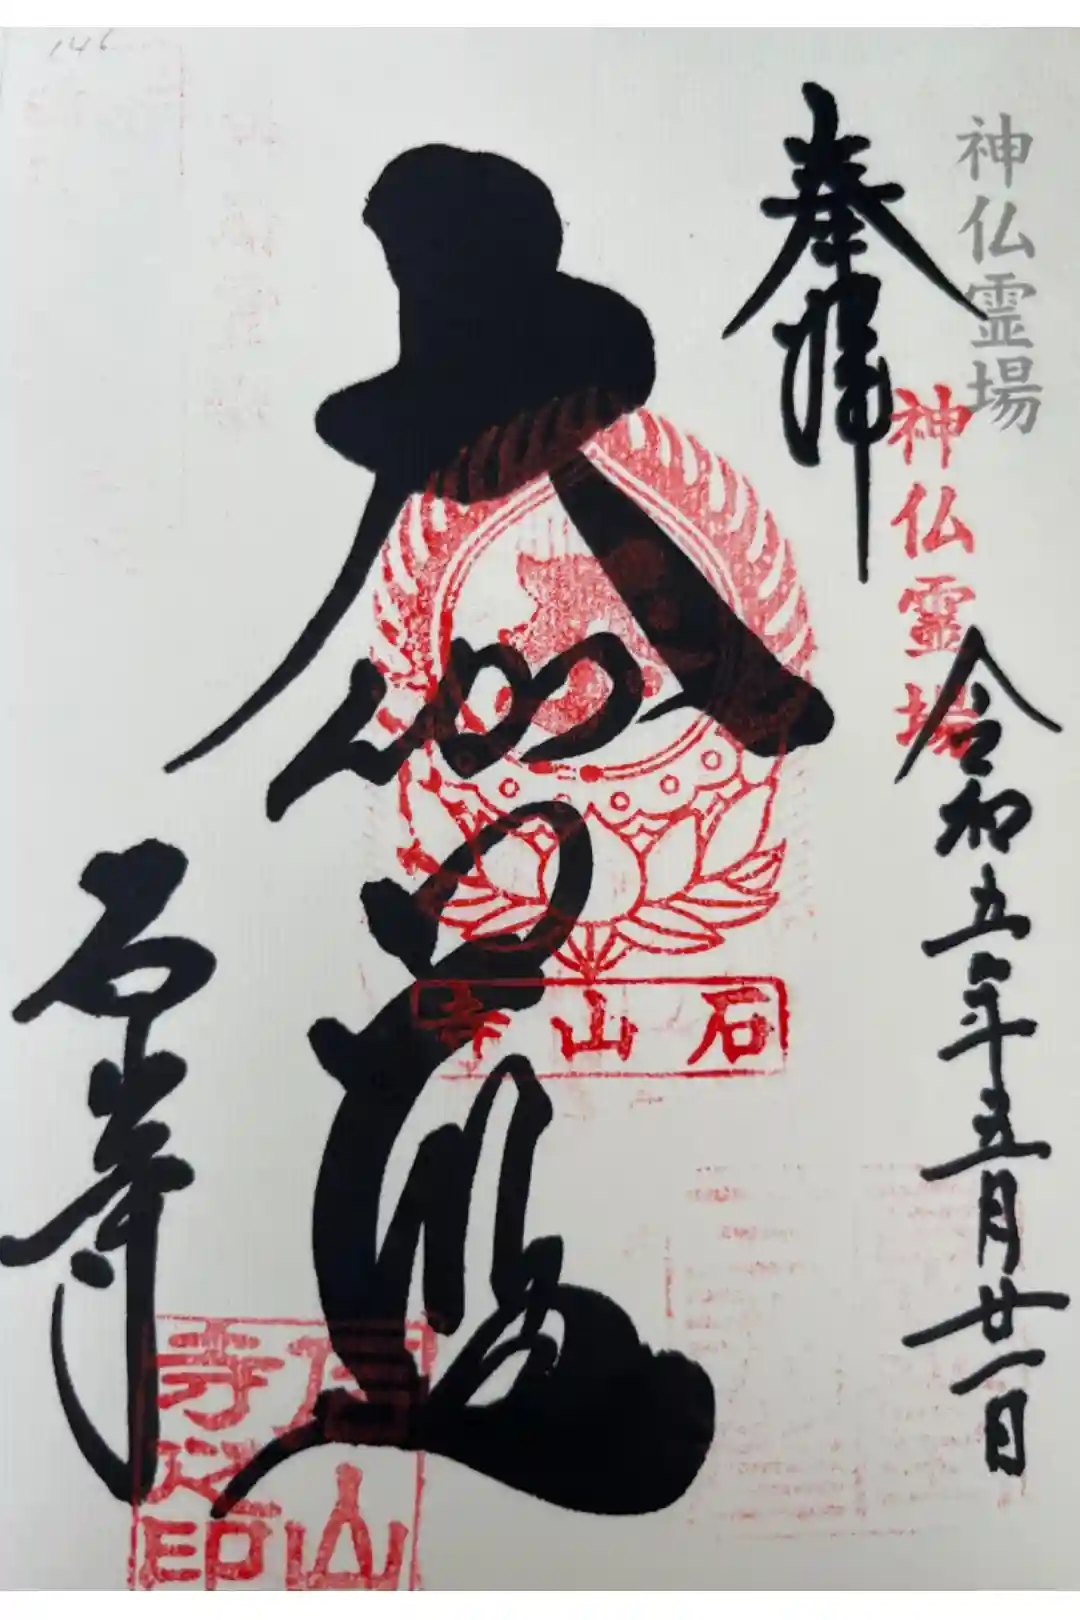 146
神仏霊場
神仏霊場
奉拝
令和五年五月廿一日
大伽藍
石山寺
石山寺
石山寺之印